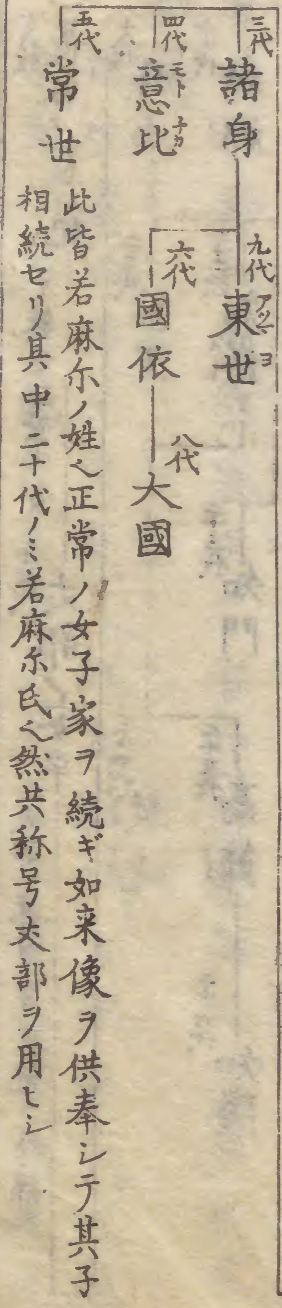 三代
諸身
九代
東世
アツマヨ
四代
意比
モトナカ
六代
國依
八代
大國
五代
常世
此皆若麻尓ノ姓也正常ノ女子家ヲ続ギ如来像ヲ供奉シテ其子
相続セリ其中二十代ノミ若麻尓氏也然共称号丈部ヲ用ヒシ